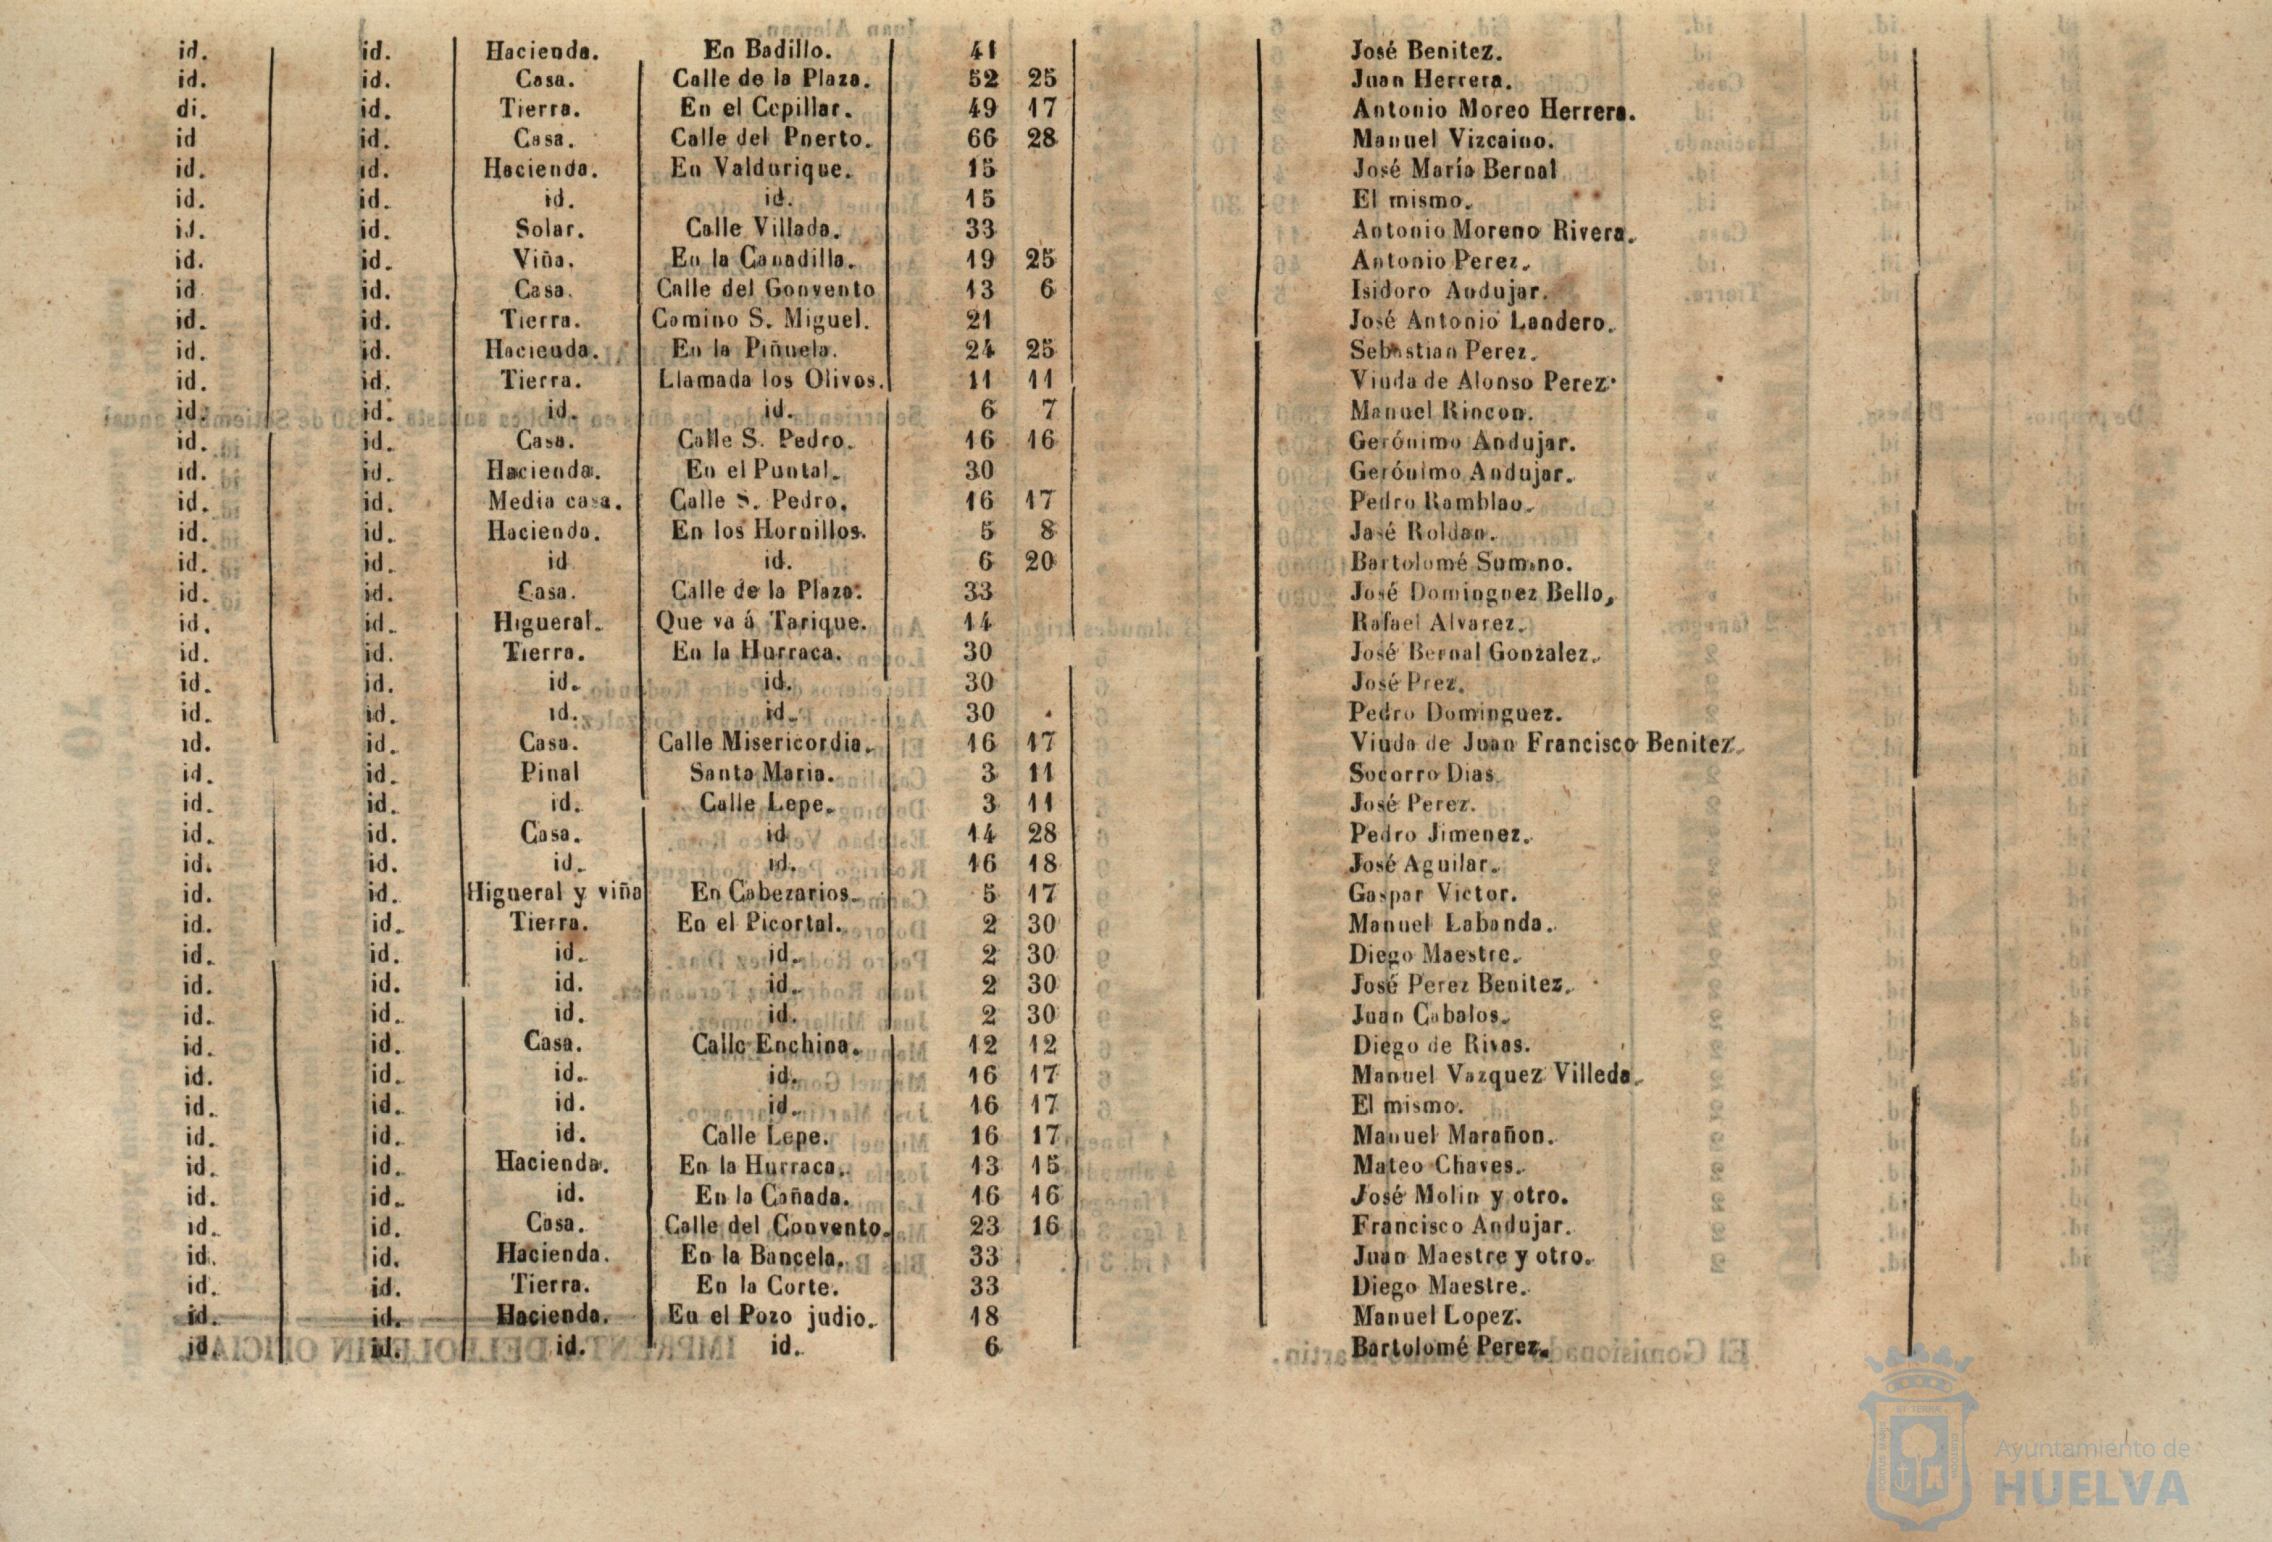 id. id. Hacienda. En Badillo. 41 José Benitez.
id. id. Casa. Calle de la Plaza. 52 25 Juan Herrera.
di. id. Tierra. En el Cepillar. 49 17 Antonio Moreo Herrera.
id id. Casa. Calle del Pnerto. 66 28 Manuel Vizcaino.
id. id. Hacienda. En Valdurique. 15 José María Bernal
id. id. id. id. 15 El mismo.
id. id. Solar. Calle Villada. 33 Antonio Moreno Rivera.
id. id. Viña. En la Canadilla. 19 25 Antonio Perez.
id id. Casa. Calle del Gonvento 13 6 Isidoro Andujar.
id. id. Tierra. Camino S. Miguel. 21 José Antonio Landero.
id. id. Hacienda. En la Piñuela. 24 25 Sebastian Perez.
id. id. Tierra. Llamada los Olivos. 11 11 Viuda de Alonso Perez
id. id. id. id. 6 7 Manuel Rincon.
id. id. Casa. Calle S. Pedro. 16 16 Gerónimo Andujar.
id. id. Hacienda. En el Puntal. 30 Gerónimo Andujar.
id. id. Media casa. Calle S. Pedro. 16 17 Pedro Ramblao.
id. id. Hacienda. En los Hornillos. 5 8 José Roldan.
id. id. id id. 6 20 Bartolomé
id. id. Casa. Calle de la Plaza. 33 José Dominguez Bello,
id. id. Higueral. Que va á Tarique. 14 Rafael Alvarez.
id. id. Tierra. En la Hurraca. 30 José Bernal Gonzalez.
id. id. id. id. 30 José Prez.
id. id. id. id. 30 Pedro Dominguez.
id. id. Casa. Calle Misericordia. 16 17 Viuda de Juan Francisco Benitez.
id. id. Pinal Santa Maria. 3 11 Socorro Dias.
id. id. id. Calle Lepe. 3 11 José Perez.
id. id. Casa. id 14 28 Pedro Jimenez.
id. id. id. id. 16 18 José Aguilar.
id. id. Higueral y viña En Cabezarios. 5 17 Gaspar Victor.
id. id. Tierra. En el Picortal. 2 30 Manuel Labanda.
id. id. id. id. 2 30 Diego Maestre.
id. id. id. id. 2 30 José Perez Benitez.
id. id. id. id. 2 30 Juan Cabalos.
id. id. Casa. Calle Enchina. 12 12 Diego de Rivas.
id. id. id. id. 16 17 Manuel Vazquez Villeda.
id. id. id. id. 16 17 El mismo.
id. id. id. Calle Lepe. 16 17 Manuel Marañon.
id. id. Hacienda. En la Hurraca. 13 15 Mateo Chaves.
id. id. id. En la Cañada. 16 16 José Molin y otro.
id. id. Casa. Calle del Convento. 23 16 Francisco Andujar.
id. id. Hacienda. En la Bancela. 33 Juan Maestre y otro.
id. id. Tierra. En la Corte. 33 Diego Maestre.
id. id. Hacienda. En el Pozo judio. 18 Manuel Lopez.
id. id. id. id. 6 Bartolomé Perez.
Ayuntamiento de
HUELVA